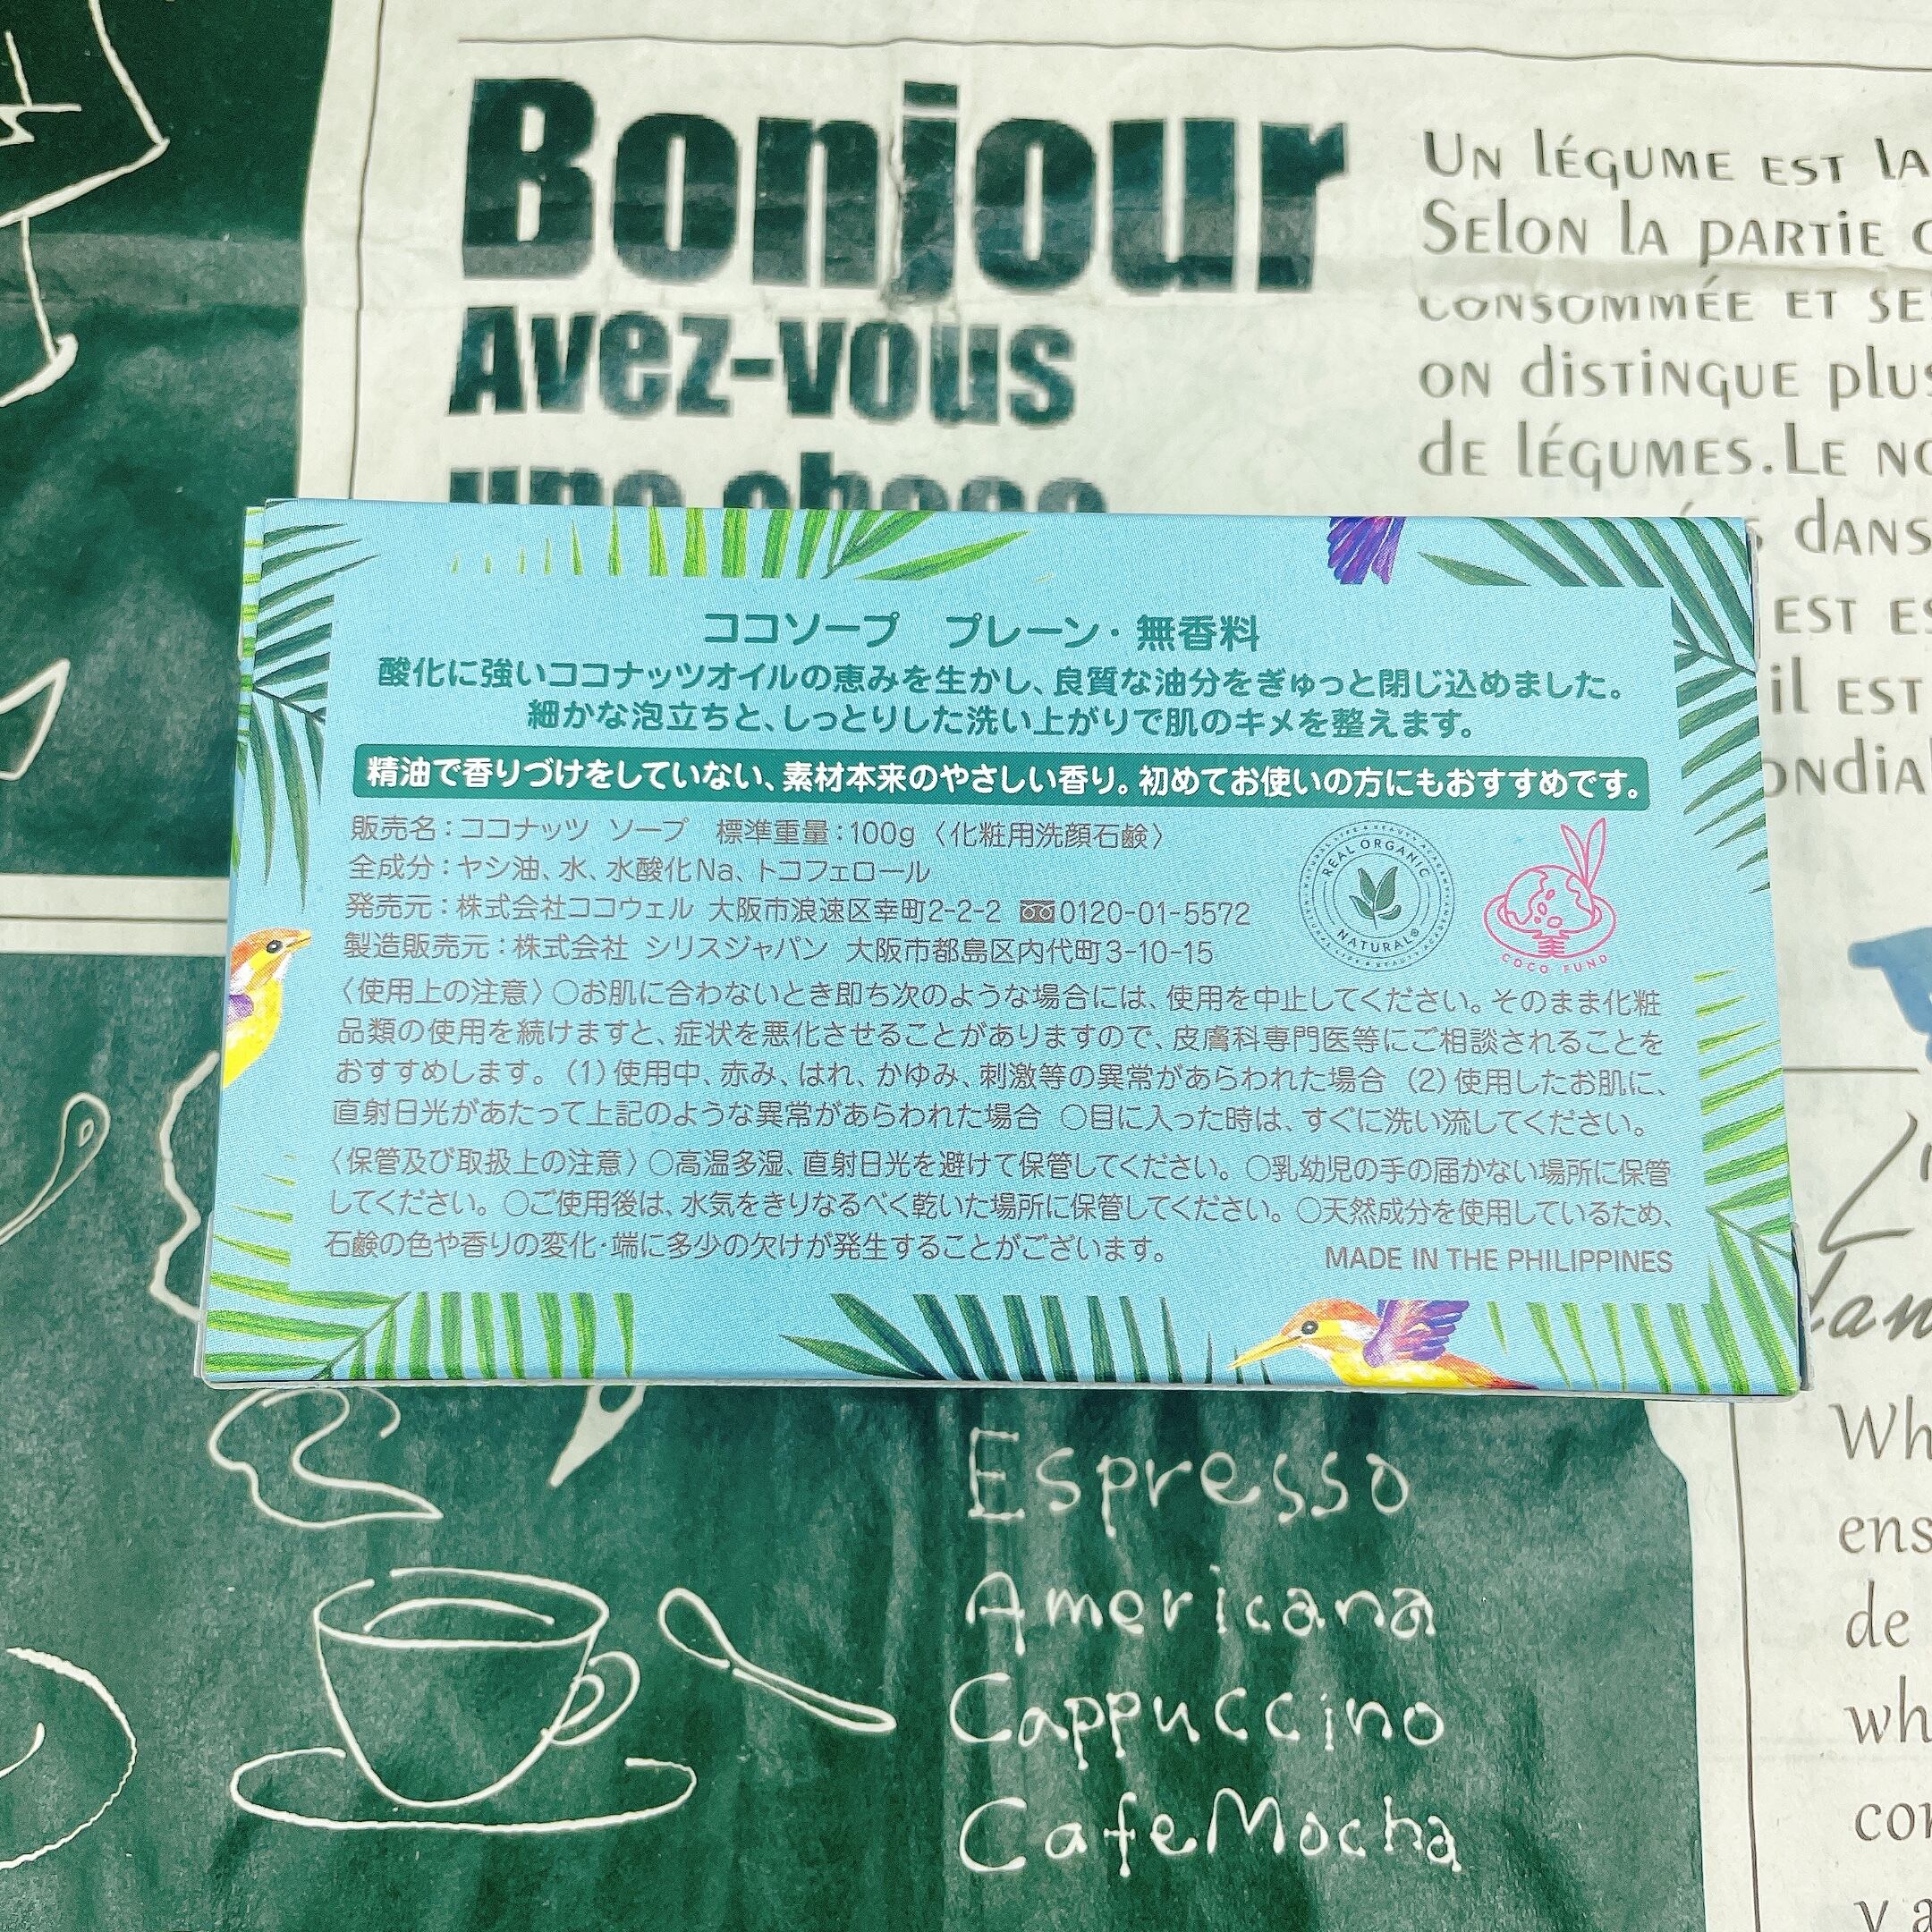 Bonjour
Avez-vous
une chose
Un légume est la
Selon la partie
consommée et se
on distingue plus
de légumes. Le no
dans
est es
il est
ondial
ココソープ プレーン・無香料
酸化に強いココナッツオイルの恵みを生かし、良質な油分をぎゅっと閉じ込めました。
細かな泡立ちと、しっとりした洗い上がりで肌のキメを整えます。
精油で香りづけをしていない、素材本来のやさしい香り。初めてお使いの方にもおすすめです。
販売名:ココナッツ ソープ 標準重量:100g〈化粧用洗顔石鹸〉
全成分:ヤシ油、水、水酸化Na、トコフェロール
発売元:株式会社ココウェル 大阪市浪速区幸町2-2-2 0120-01-5572
製造販売元:株式会社 シリスジャパン 大阪市都島区内代町3-10-15
REAL ORGANIC
NATURAL®
COCO FUND
〈使用上の注意〉○お肌に合わないとき即ち次のような場合には、使用を中止してください。そのまま化粧
品類の使用を続けますと、症状を悪化させることがありますので、皮膚科専門医等にご相談されることを
おすすめします。(1)使用中、赤み、はれ、かゆみ、刺激等の異常があらわれた場合 (2)使用したお肌に、
直射日光があたって上記のような異常があらわれた場合 ○目に入った時は、すぐに洗い流してください。
〈保管及び取扱上の注意〉○高温多湿、直射日光を避けて保管してください。○乳幼児の手の届かない場所に保管
してください。○ご使用後は、水気をきりなるべく乾いた場所に保管してください。○天然成分を使用しているため、
石鹸の色や香りの変化・端に多少の欠けが発生することがございます。
MADE IN THE PHILIPPINES
Espresso
Americana
Cappuccino
CafeMocha
Wh
ens
de
wh
con
y a